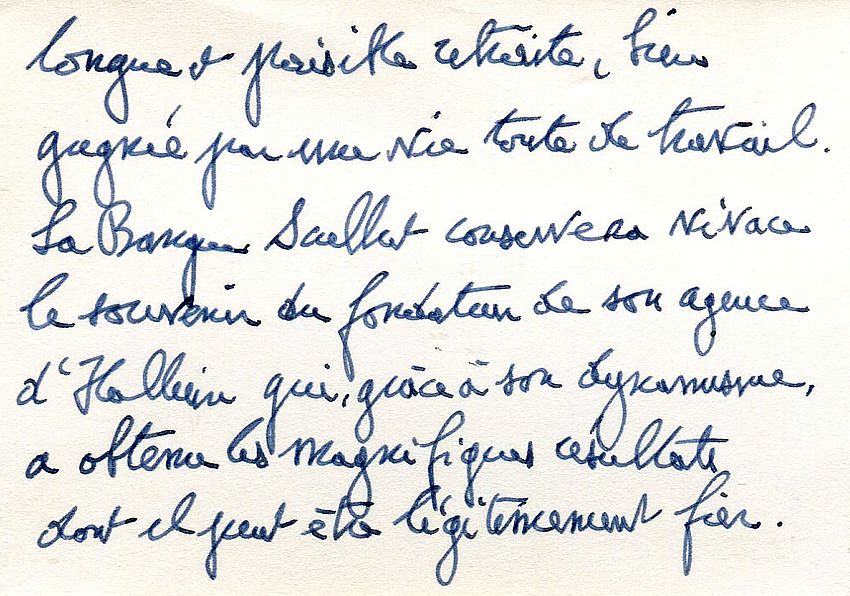 longue et paisible retraite, bien
gagnée par une vie toute de travail.
La Banque Scalbert conservera vivace
le souvenir du fondateur de son agence
d'Halluin qui, grâce à son dynamisme,
a obtenu les magnifiques résultats
dont il peut être légitimement fier.